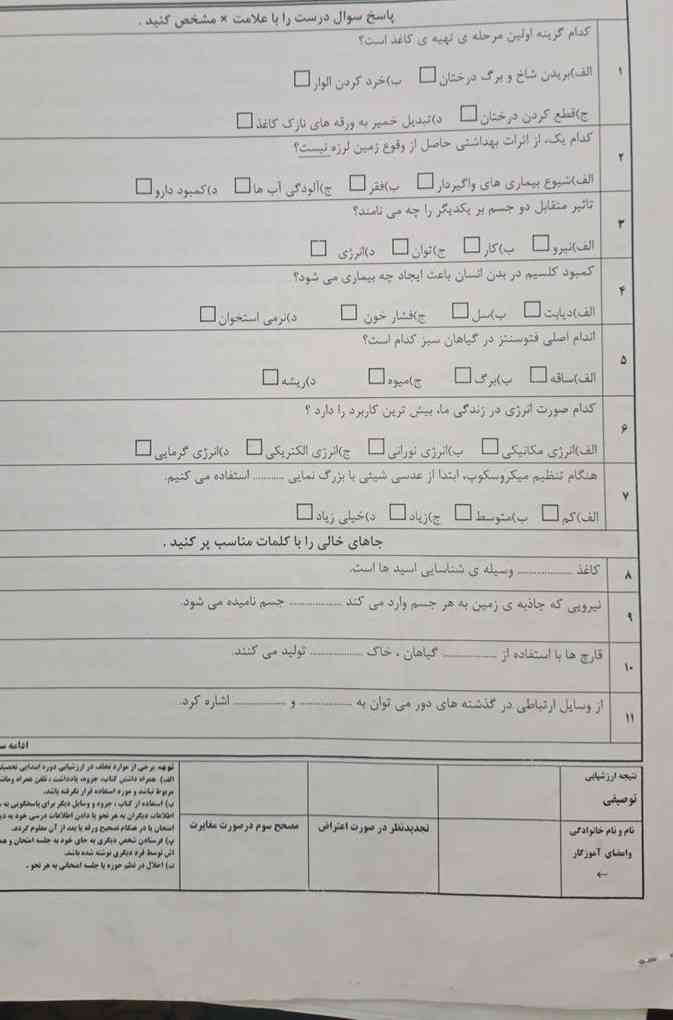 پاسخ سوال درست را با علامت × مشخص کنید .
۱
کدام گزینه اولین مرحله ی تهیه ی کاغذ است؟
الف)بریدن شاخ و برگ درختان □ ب)خرد کردن الوار □
ج)قطع کردن درختان □ د)تبدیل خمیر به ورقه های نازک کاغذ □
۲
کدام یک، از اثرات بهداشتی حاصل از وقوع زمین لرزه نیست؟
الف)شیوع بیماری های واگیردار □ ب)فقر □ ج)آلودگی آب ها □ د)کمبود دارو □
۳
تاثیر متقابل دو جسم بر یکدیگر را چه می نامند؟
الف)نیرو □ ب)کار □ ج)توان □ د)انرژی □
۴
کمبود کلسیم در بدن انسان باعث ایجاد چه بیماری می شود؟
الف)دیابت □ ب)سل □ ج)فشار خون □ د)نرمی استخوان □
۵
اندام اصلی فتوسنتز در گیاهان سبز کدام است؟
الف)ساقه □ ب)برگ □ ج)میوه □ د)ریشه □
۶
کدام صورت انرژی در زندگی ما، بیش ترین کاربرد را دارد ؟
الف)انرژی مکانیکی □ ب)انرژی نورانی □ ج)انرژی الکتریکی □ د)انرژی گرمایی □
۷
هنگام تنظیم میکروسکوپ، ابتدا از عدسی شیئی با بزرگ نمایی .......... استفاده می کنیم.
الف)کم □ ب)متوسط □ ج)زیاد □ د)خیلی زیاد □
جاهای خالی را با کلمات مناسب پر کنید .
۸
کاغذ ................. وسیله ی شناسایی اسید ها است.
۹
نیرویی که جاذبه ی زمین به هر جسم وارد می کند ................. جسم نامیده می شود.
۱۰
قارچ ها با استفاده از ................. گیاهان ، خاک ................. تولید می کنند.
۱۱
از وسایل ارتباطی در گذشته های دور می توان به ................. و ................. اشاره کرد.
ادامه
نتیجه ارزشیابی
توصیفی
نام و نام خانوادگی
وامضای آموزگار
←
تجدیدنظر در صورت اعتراض
مصحح سوم درصورت مغایرت
توجه برخی از موارد تخلف در ارزشیابی دوره ابتدایی
الف) همراه داشتن کتاب، جزوه، یادداشت ، تلفن همراه
مربوط نباشد و مورد استفاده قرار نگرفته باشد.
ب) استفاده از کتاب ، جزوه و وسایل دیگر برای پاسخگویی به
اطلاعات دیگران به هر نحو یا دادن اطلاعات درسی خود به
امتحان یا در هنگام تصحیح ورقه یا بعد از آن معلوم گردد.
پ) فرستادن شخص دیگری به جای خود به جلسه امتحان و
اش توسط فرد دیگری نوشته شده باشد.
ت) اخلال در نظم حوزه یا جلسه امتحانی به هر نحو .